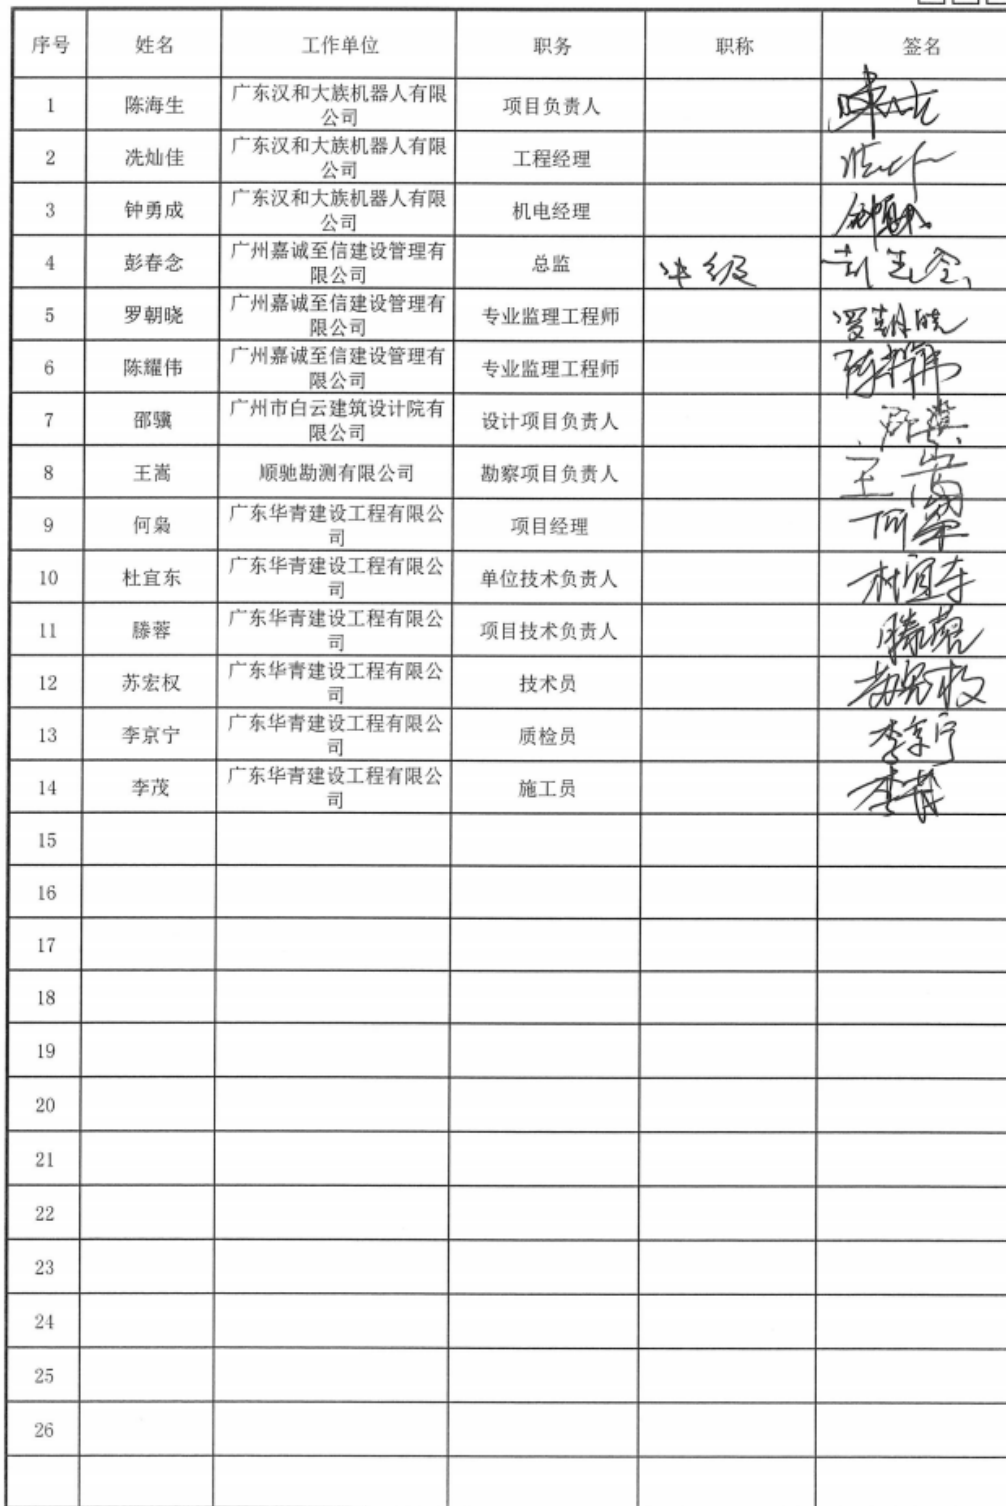 序号 姓名 工作单位 职务 职称 签名
1 陈海生 广东汉和大族机器人有限公司 项目负责人
2 冼灿佳 广东汉和大族机器人有限公司 工程经理
3 钟勇成 广东汉和大族机器人有限公司 机电经理 钟勇成
4 彭春念 广州嘉诚至信建设管理有限公司 总监 中级 彭春念
5 罗朝晓 广州嘉诚至信建设管理有限公司 专业监理工程师 罗朝晓
6 陈耀伟 广州嘉诚至信建设管理有限公司 专业监理工程师 陈耀伟
7 邵骥 广州市白云建筑设计院有限公司 设计项目负责人 邵骥
8 王嵩 顺驰勘测有限公司 勘察项目负责人 王嵩
9 何枭 广东华青建设工程有限公司 项目经理 何枭
10 杜宜东 广东华青建设工程有限公司 单位技术负责人 杜宜东
11 滕蓉 广东华青建设工程有限公司 项目技术负责人 滕蓉
12 苏宏权 广东华青建设工程有限公司 技术员 苏宏权
13 李京宁 广东华青建设工程有限公司 质检员 李京宁
14 李茂 广东华青建设工程有限公司 施工员 李茂
15
16
17
18
19
20
21
22
23
24
25
26